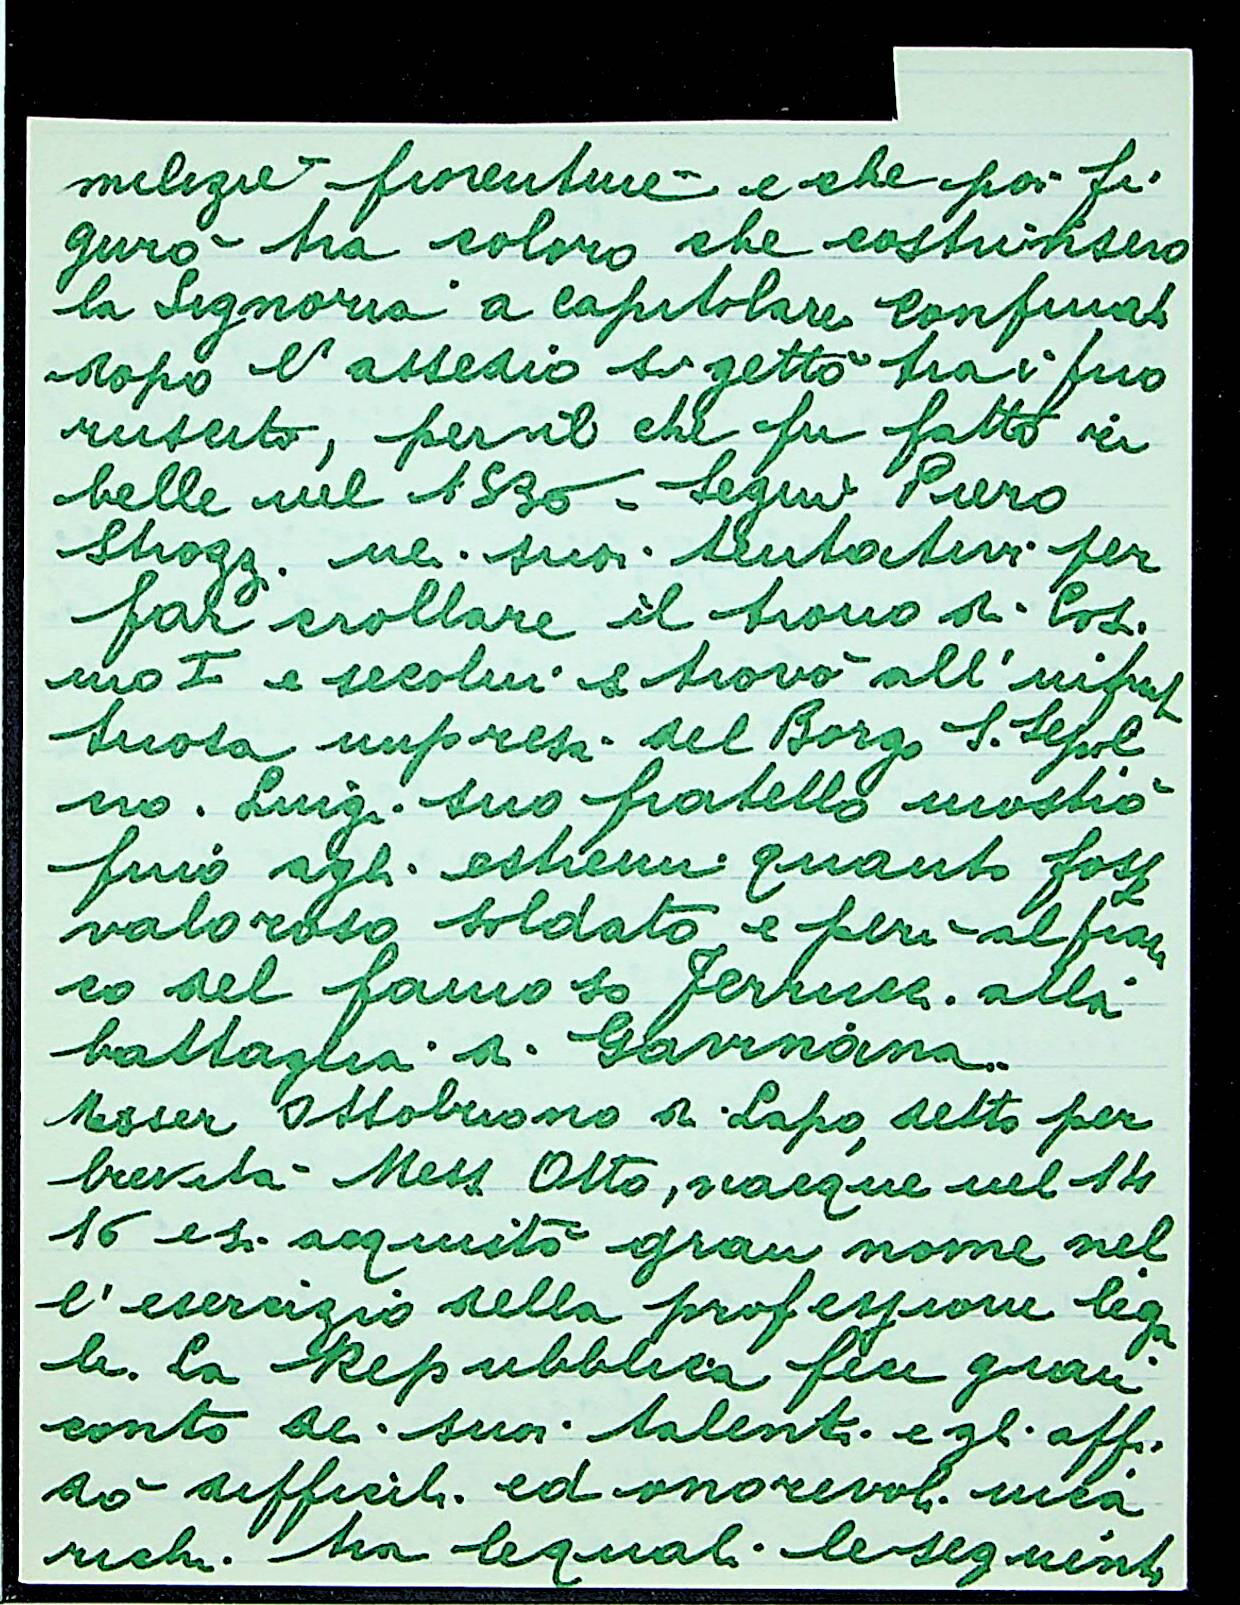 milizie fiorentine e che poi fi
gurò tra coloro che costrinsero
la Signoria a capitolare. Confinat
dopo l'assedio si gettò tra i fuo
rusciti, per il che fu fatto ri
belle nel 1530 - Seguì Piero
Strozzi nei suoi tentativi per
far crollare il trono di Cosi
mo I e secolui si trovò all'infrut
tuosa impresa del Borgo S. Sepol
cro. Luigi suo fratello mostrò
fino agli estremi quanto fosse
valoroso soldato e perì al fian
co del famoso Ferrucci alla
battaglia di Gavinana.
Messer Ottobuono di Lapo, detto per
brevità Mess Otto, nacque nel 14
16 e si acquistò gran nome nel
l'esercizio della professione lega
le. La Repubblica fece gran
conto dei suoi talenti e gli affi
dò difficili ed onorevoli inca
richi tra le quali le seguenti